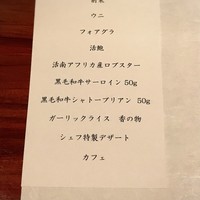 前菜
ウニ
フォアグラ
活鮑
活南アフリカ産ロブスター
黒毛和牛サーロイン 50g
黒毛和牛シャトーブリアン 50g
ガーリックライス 香の物
シェフ特製デザート
カフェ